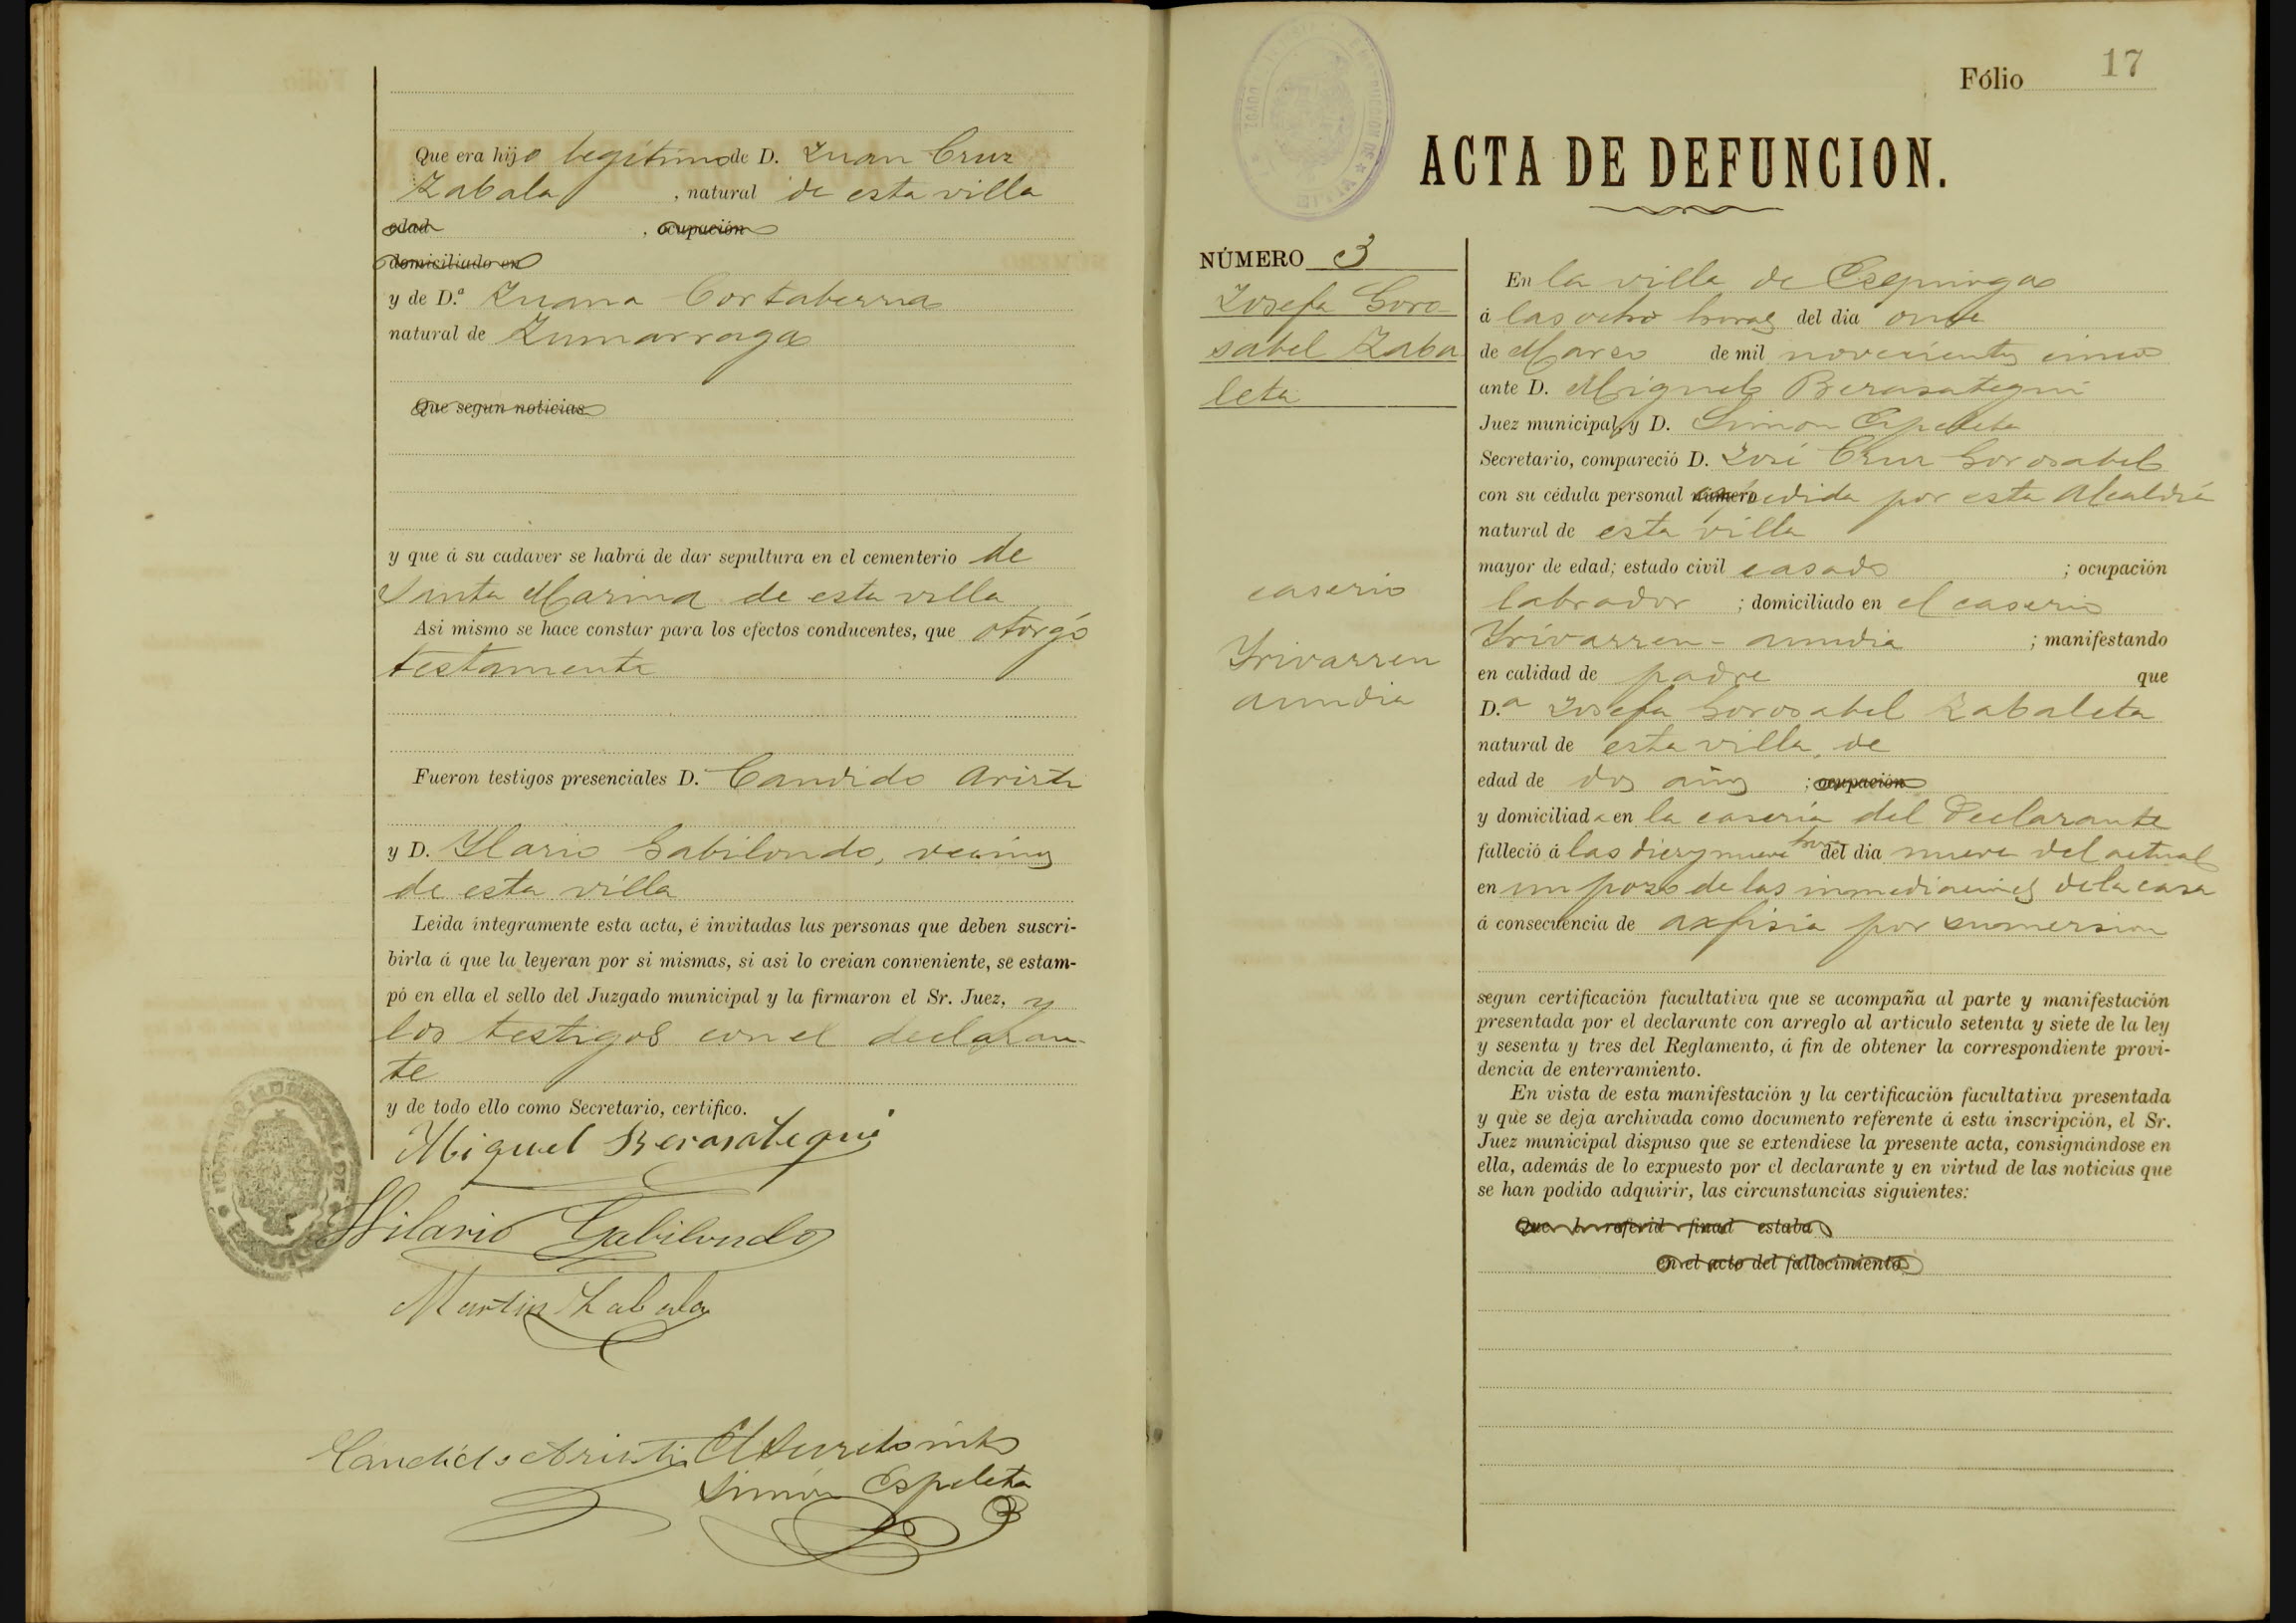 Que era hijo legítimo de D. Juan Cruz
Zabala, natural de esta villa
edad , ocupación
domiciliado en
y de D.ª Juana Cortaberria
natural de Zumarraga
Que segun noticias
y que á su cadaver se habrá de dar sepultura en el cementerio de
Santa Marina de esta villa
Asi mismo se hace constar para los efectos conducentes, que otorgó
testamento
Fueron testigos presenciales D. Candido Aristi
y D. Ylario Gabilondo, vecinos
de esta villa
Leida íntegramente esta acta, é invitadas las personas que deben suscri-
birla á que la leyeran por si mismas, si asi lo creian conveniente, se estam-
pó en ella el sello del Juzgado municipal y la firmaron el Sr. Juez, y
los testigos con el declaran-
te
y de todo ello como Secretario, certifico.
Miguel Berasategui
Hilario Gabilondo
Martin Zabala
Candido Aristi El Secretario
Simón Espeleta
Fólio 17
ACTA DE DEFUNCION.
NÚMERO 3
Josefa Goro-
sabel Zaba
leta
caserio
Yrivarren
aundia
En la villa de
á las ocho horas del dia once
de Marzo de mil novecientos cinco
ante D. Miguel Berasategui
Juez municipal, y D. Simon Espeleta
Secretario, compareció D. José Cruz Gorosabel
con su cédula personal número expedida por esta Alcaldia
natural de esta villa
mayor de edad; estado civil casado ; ocupación
labrador ; domiciliado en el caserio
Yrivarren-aundia ; manifestando
en calidad de padre que
D.ª Josefa Gorosabel Zabaleta
natural de esta villa, de
edad de dos años ; ocupación
y domiciliada en la caseria del Declarante
falleció á las diez y nueve horas del dia nueve del actual
en un pozo de las inmediaciones de la casa
á consecuencia de axfisia por sumersion
segun certificación facultativa que se acompaña al parte y manifestación
presentada por el declarante con arreglo al artículo setenta y siete de la ley
y sesenta y tres del Reglamento, á fin de obtener la correspondiente provi-
dencia de enterramiento.
En vista de esta manifestación y la certificación facultativa presentada
y que se deja archivada como documento referente á esta inscripción, el Sr.
Juez municipal dispuso que se extendiese la presente acta, consignándose en
ella, además de lo expuesto por el declarante y en virtud de las noticias que
se han podido adquirir, las circunstancias siguientes:
Que referid finad estaba
en el acto del fallecimiento